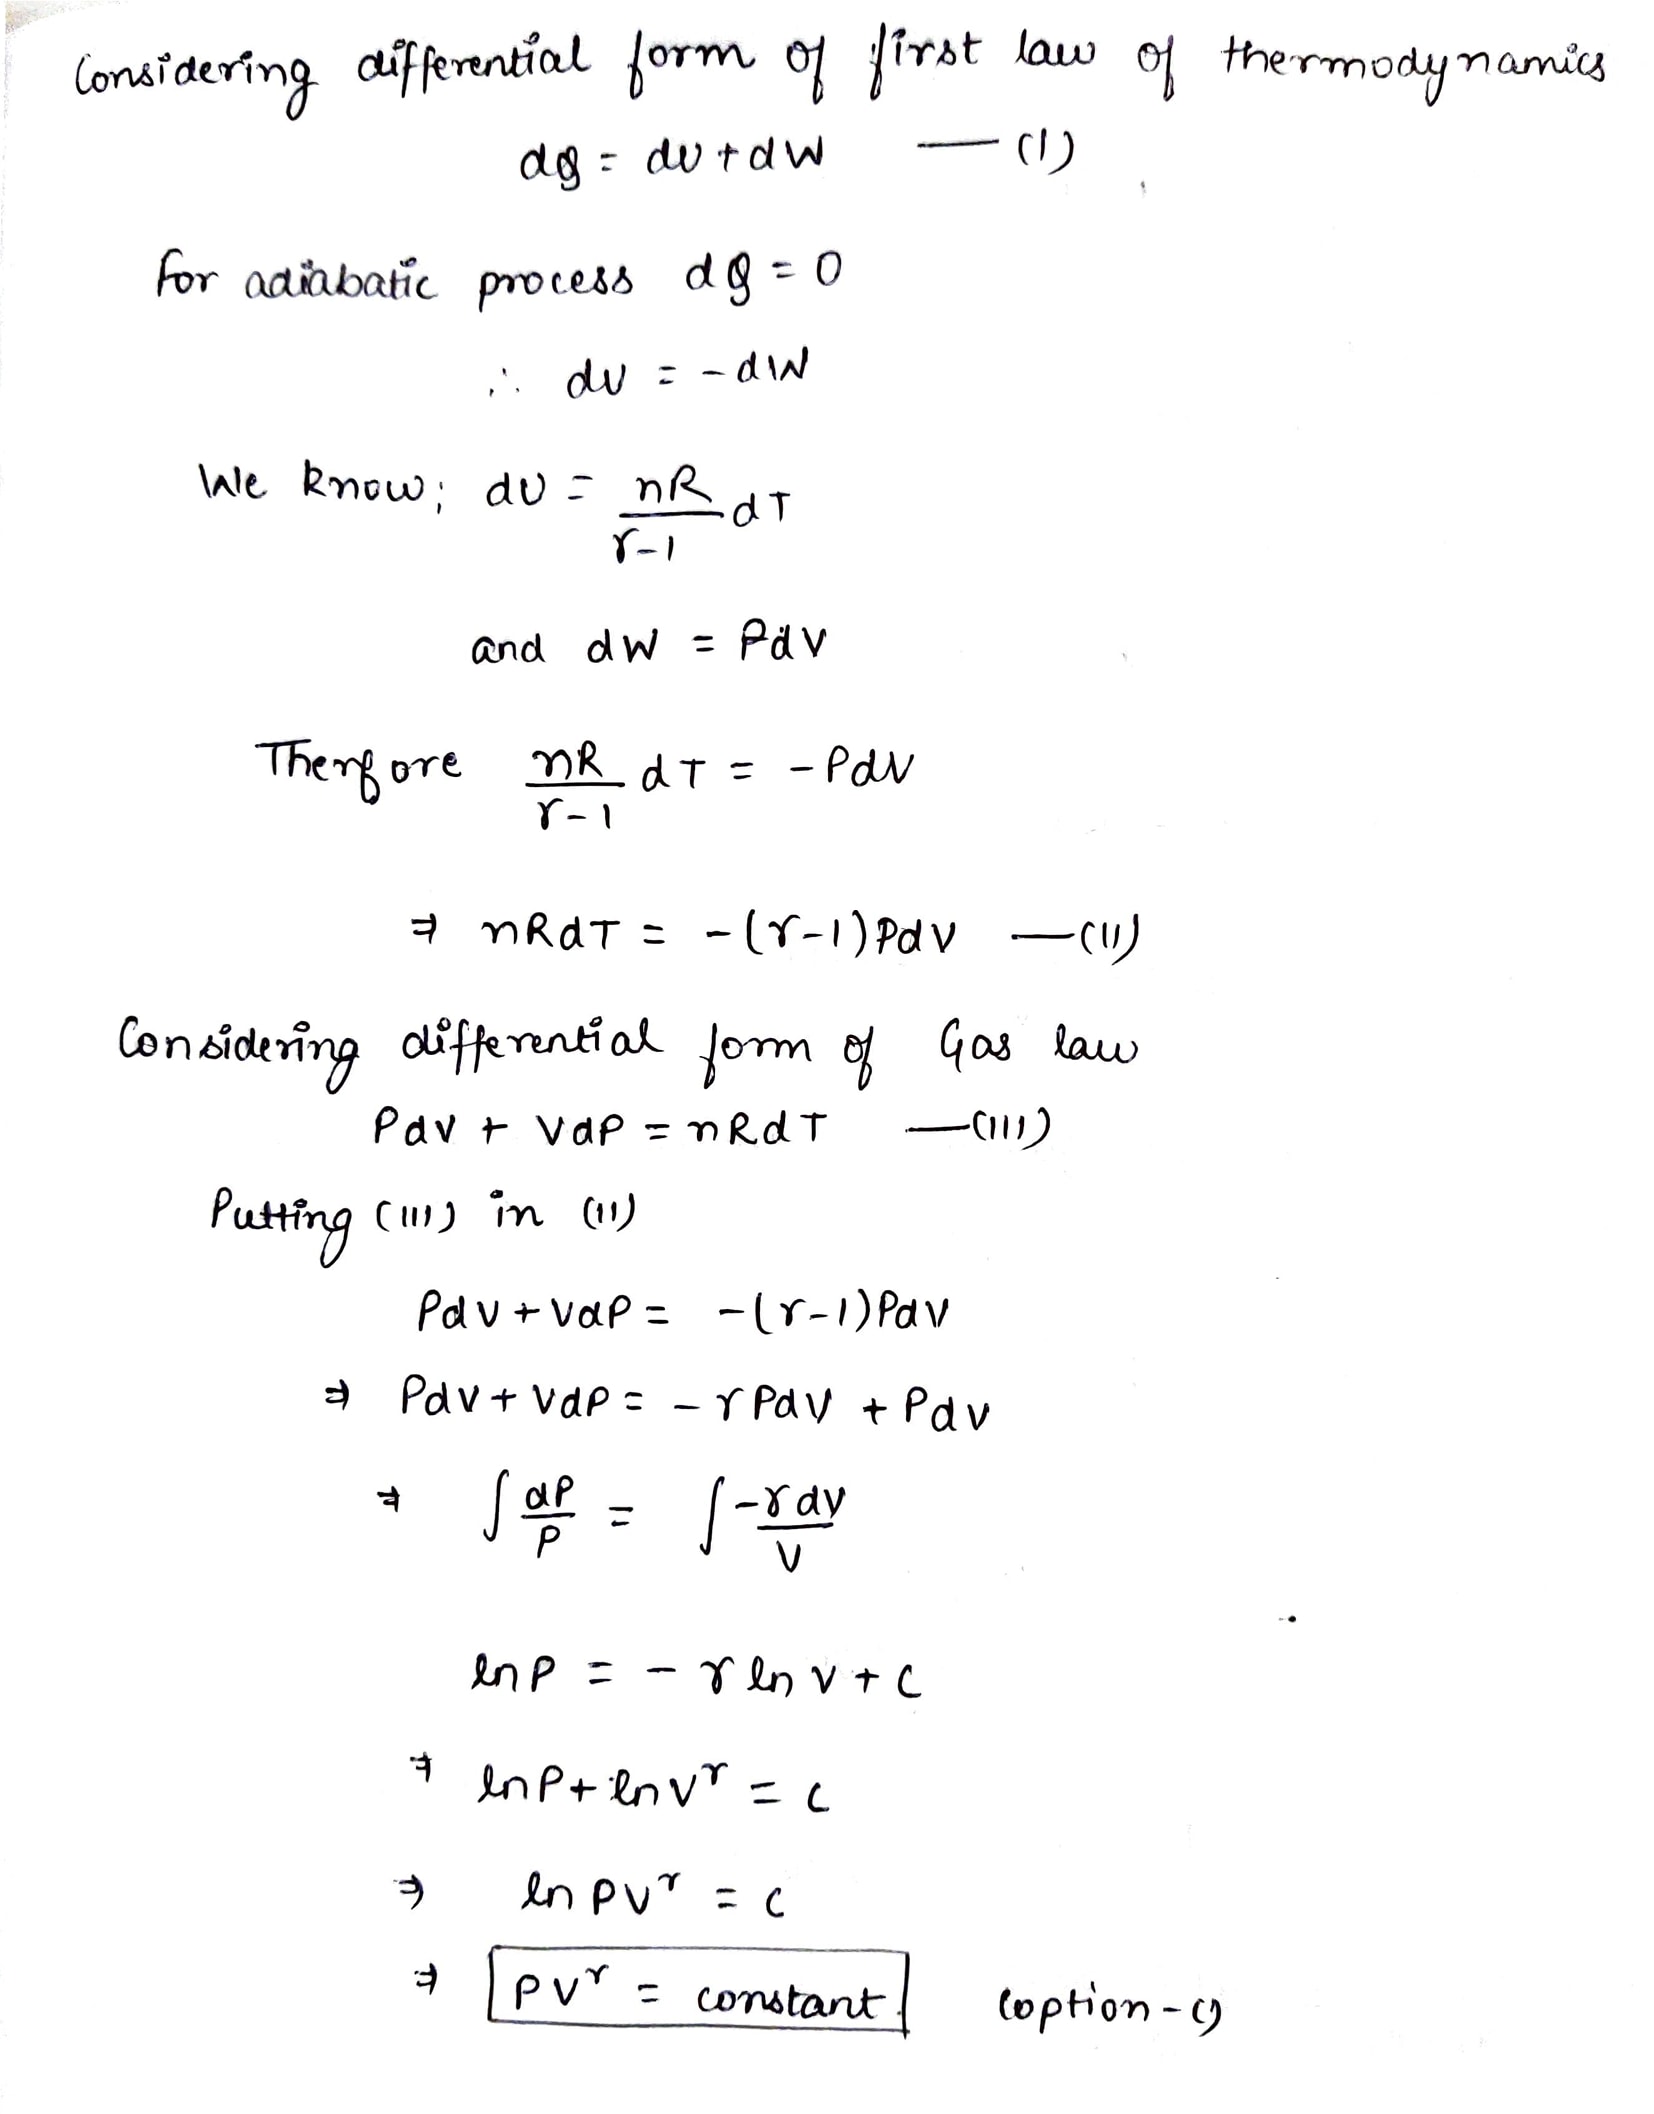 Considering differential form of first law of thermodynamics
dQ = dU + dW —(I)
For adiabatic process dQ = 0
∴ dU = -dW
We know; dU = nR/(γ-1) dT
and dW = PdV
Therfore nR/(γ-1) dT = -PdV
⇒ nRdT = -(γ-1)PdV —(II)
Considering differential form of Gas law
PdV + VdP = nRdT —(III)
Putting (III) in (II)
PdV + VdP = -(γ-1)PdV
⇒ PdV + VdP = -γPdV + PdV
⇒ ∫dP/P = ∫-γdV/V
lnP = -γ ln V + C
⇒ lnP + lnV^γ = C
⇒ ln PV^γ = C
⇒ PV^γ = constant. (option-C)